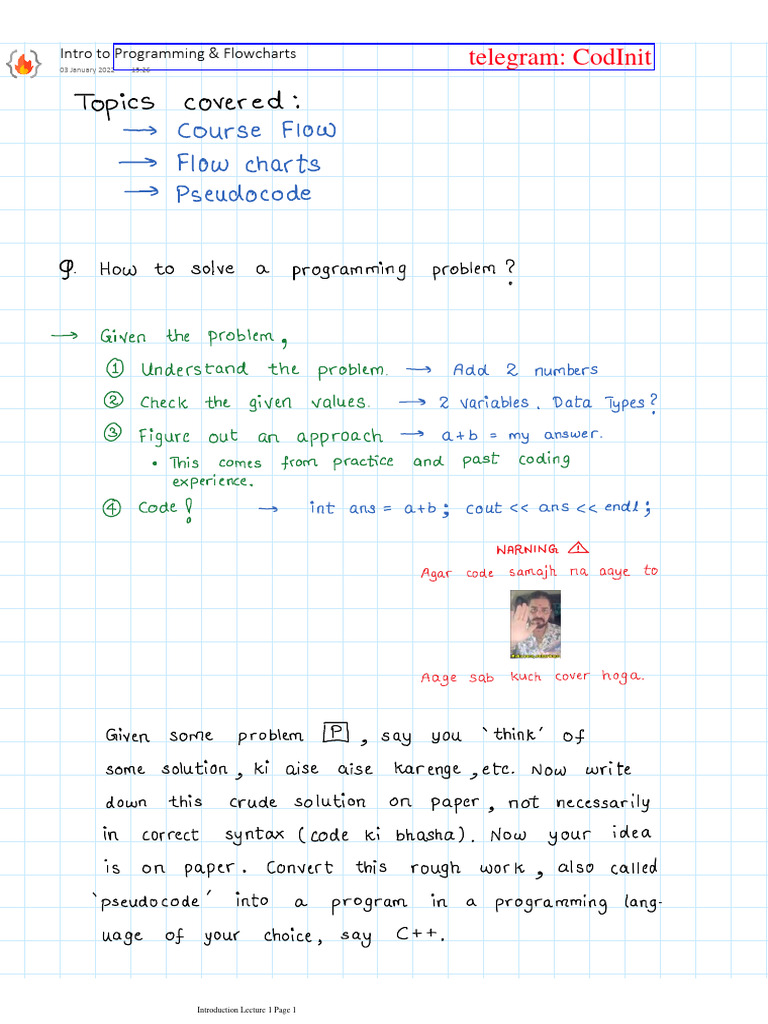 Intro to Programming & Flowcharts
telegram: CodInit
03 January 2022
Topics covered:
→ Course Flow
→ Flow charts
→ Pseudocode
Q. How to solve a programming problem?
→ Given the problem,
① Understand the problem. → Add 2 numbers
② Check the given values. → 2 variables. Data Types?
③ Figure out an approach → a+b = my answer.
• This comes from practice and past coding
experience.
④ Code! → int ans = a+b; cout << ans << endl;
WARNING ⚠
Agar code samajh na aaye to
Aage sab kuch cover hoga.
Given some problem P, say you 'think' of
some solution, ki aise aise karenge, etc. Now write
down this crude solution on paper, not necessarily
in correct syntax (code ki bhasha). Now your idea
is on paper. Convert this rough work, also called
'pseudocode' into a program in a programming lang-
uage of your choice, say C++.
Introduction Lecture 1 Page 1